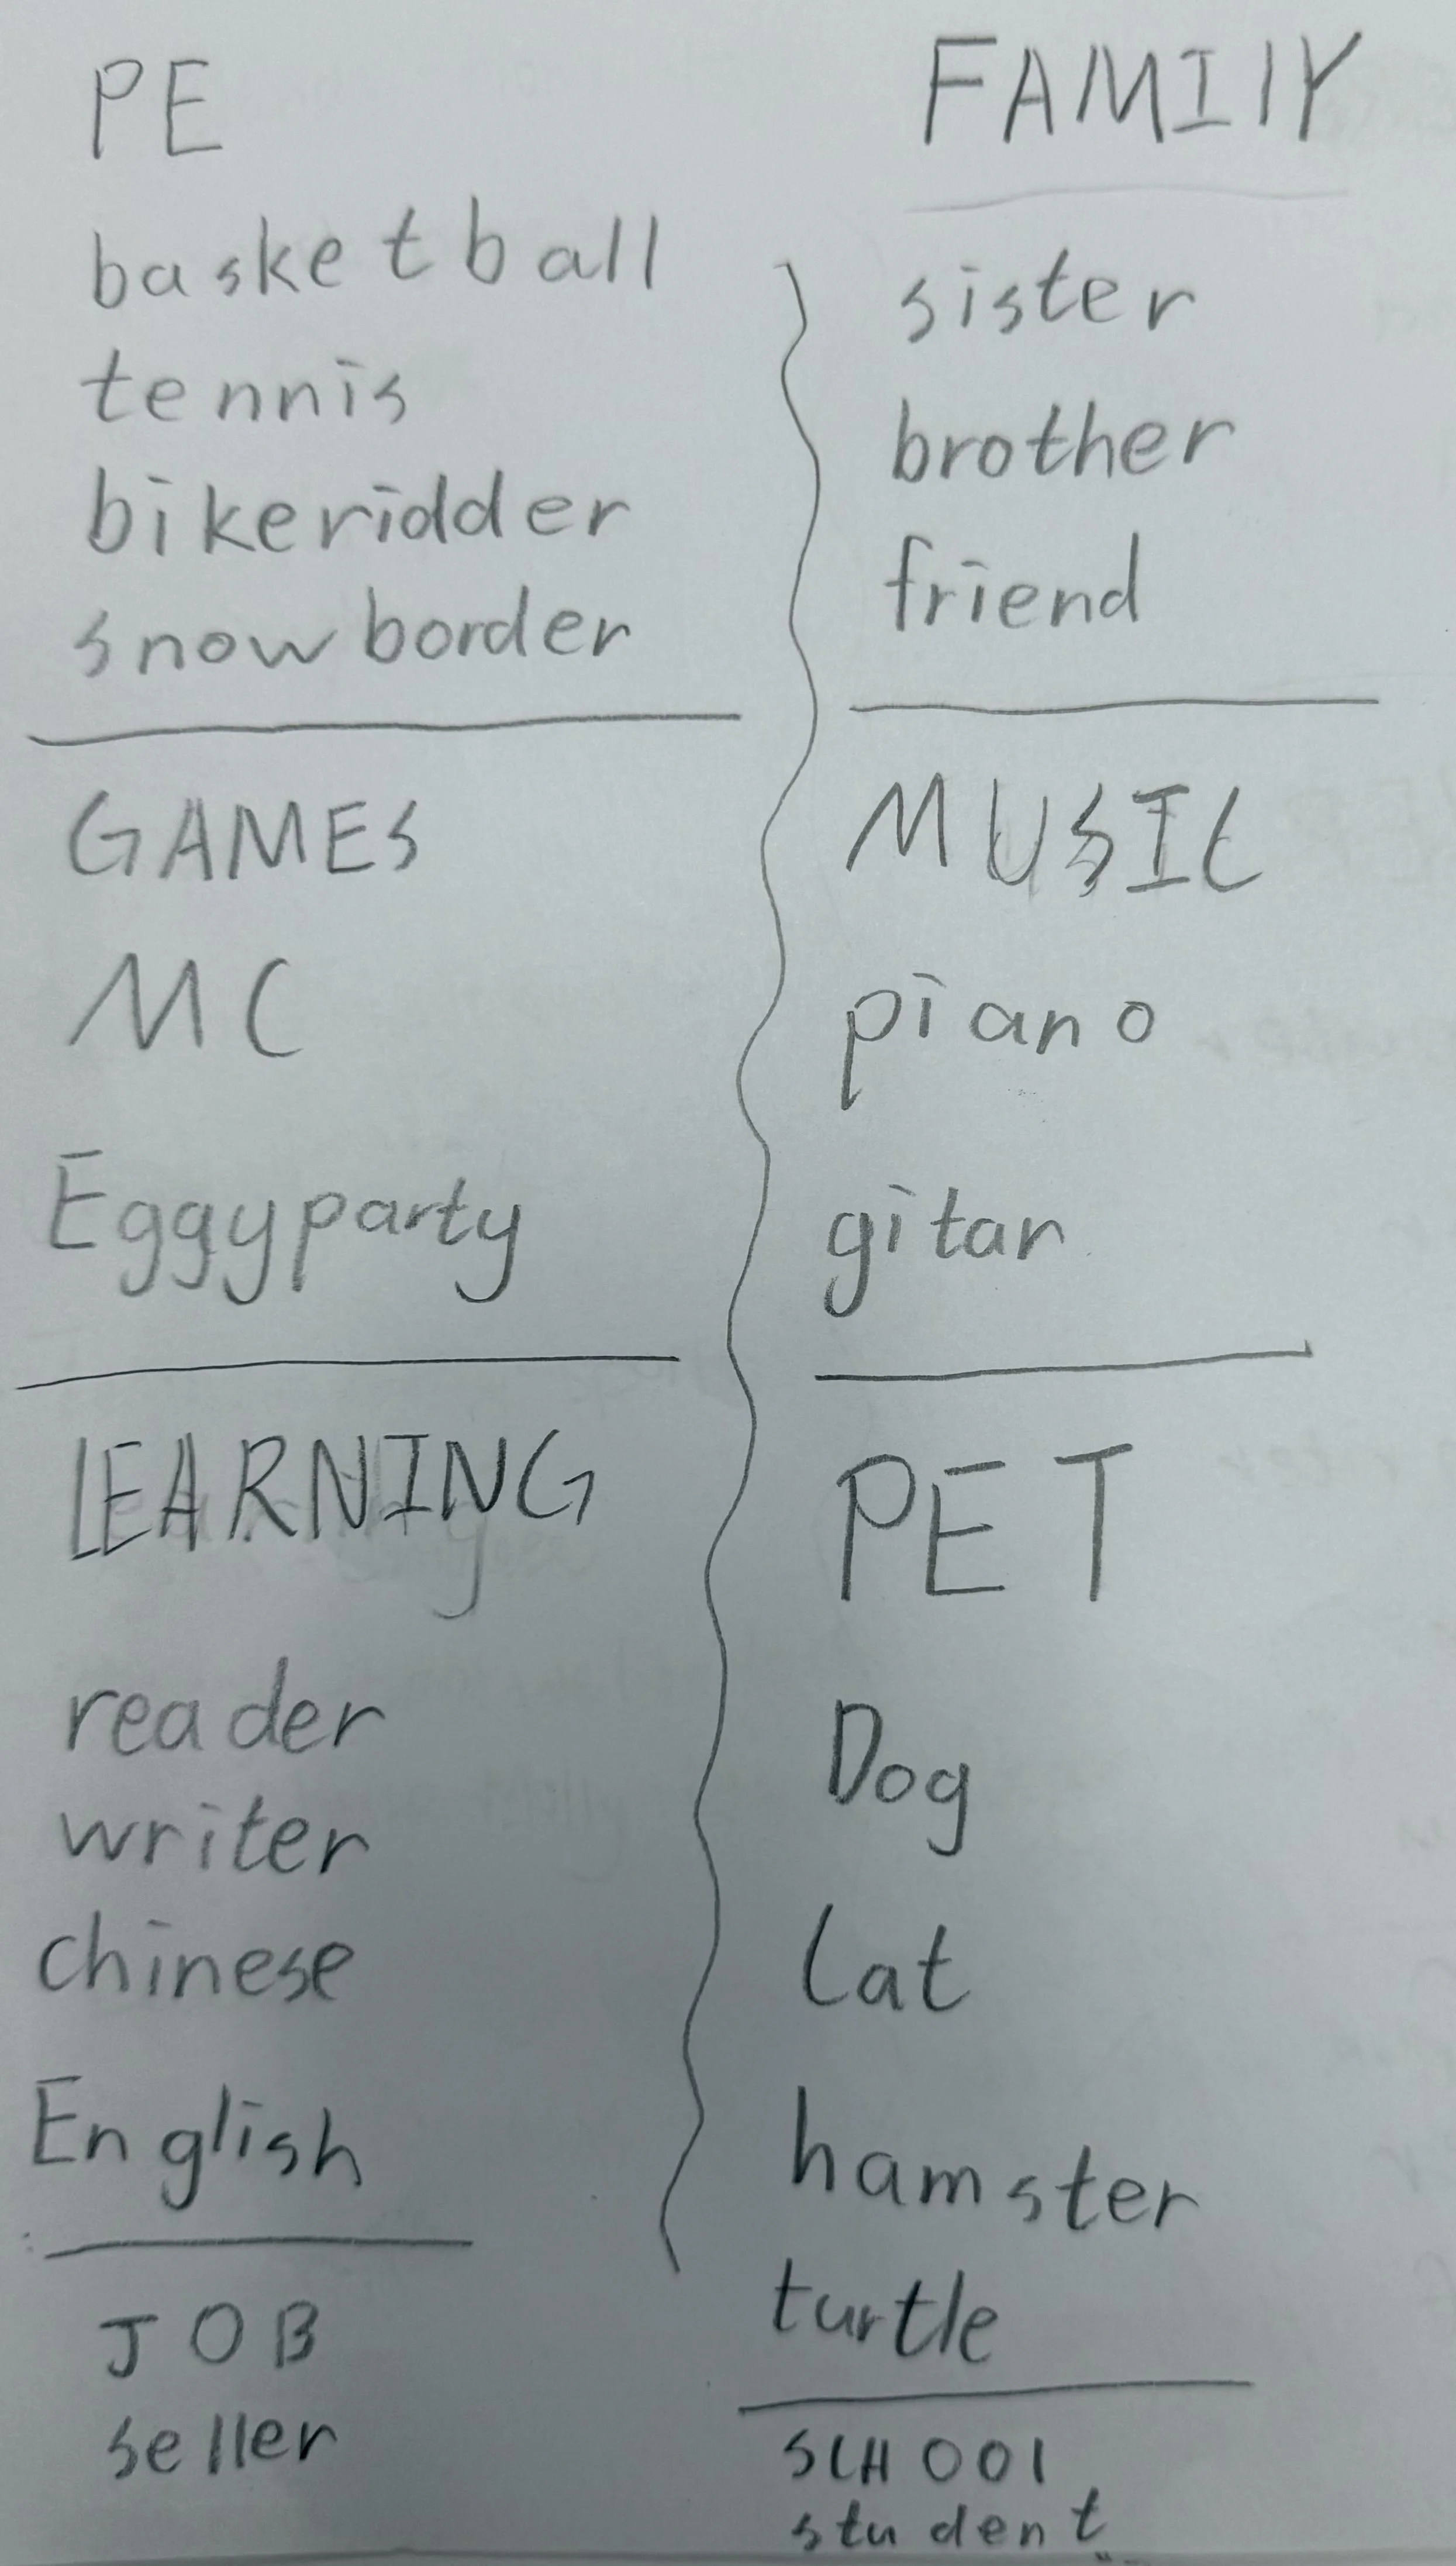 PE
basketball
tennis
bikeridder
snowborder
GAMES
MC
Eggyparty
LEARNING
reader
writer
chinese
English
JOB
seller
FAMIlY
sister
brother
friend
MUSIC
piano
gitar
PET
Dog
Cat
hamster
turtle
SCHOOl
student